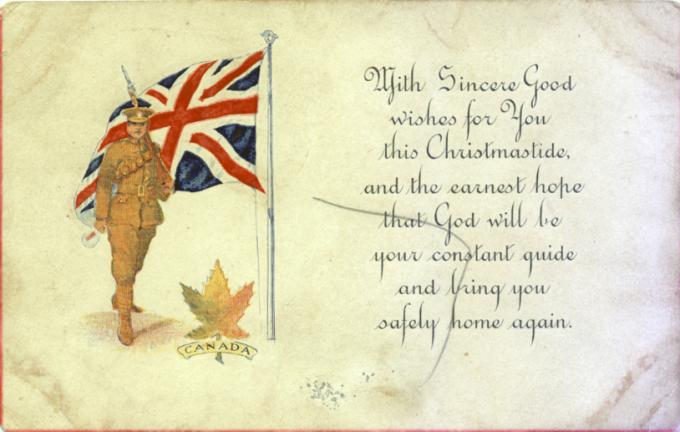 With Sincere Good
wishes for You
this Christmastide,
and the earnest hope
that God will be
your constant guide
and bring you
safely home again.
CANADA